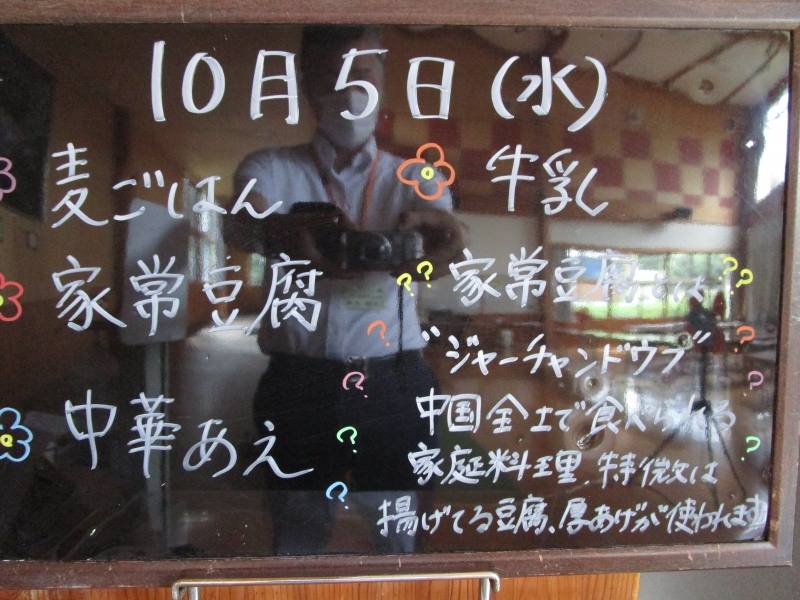 10月5日(水)
麦ごはん
牛乳
家常豆腐
中華あえ
??家常豆腐とは??
"ジャーチャンドウフ"
中国全土で食べられる
家庭料理、特徴は
揚げてる豆腐、厚あげが使われます